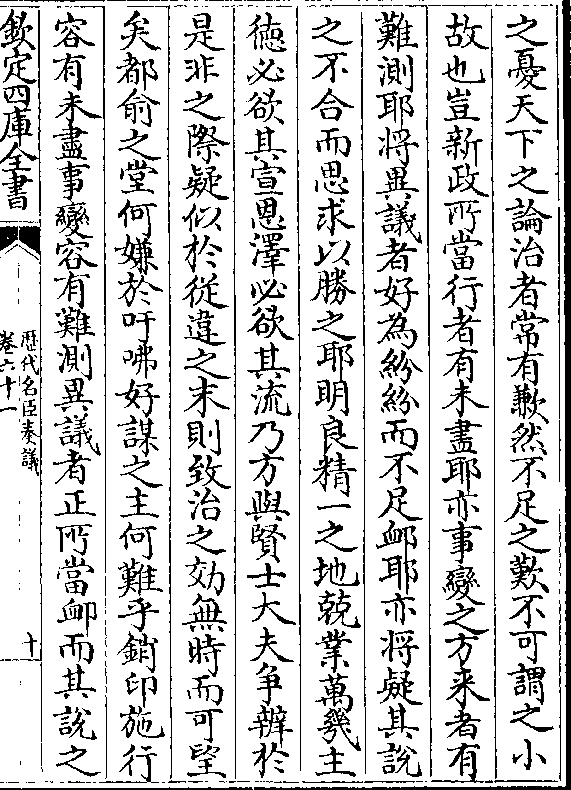 之憂天下之論治者常有歉然不足之歎不可謂之小
故也豈新政所當行者有未盡耶亦事變之方來者有
難測耶將異議者好為紛紛而不足䘏耶亦將疑其說
之不合而思求以勝之耶明良精一之地兢業萬幾主
徳必欲其宣恩澤必欲其流乃方與賢士大夫爭辨於
是非之際疑似於從違之末則致治之効無時而可望
矣都俞之堂何嫌於吁咈好謀之主何難乎銷印施行
容有未盡事變容有難測異議者正所當䘏而其說之
欽定四庫全書
歴代名臣奏議
卷六十一
十